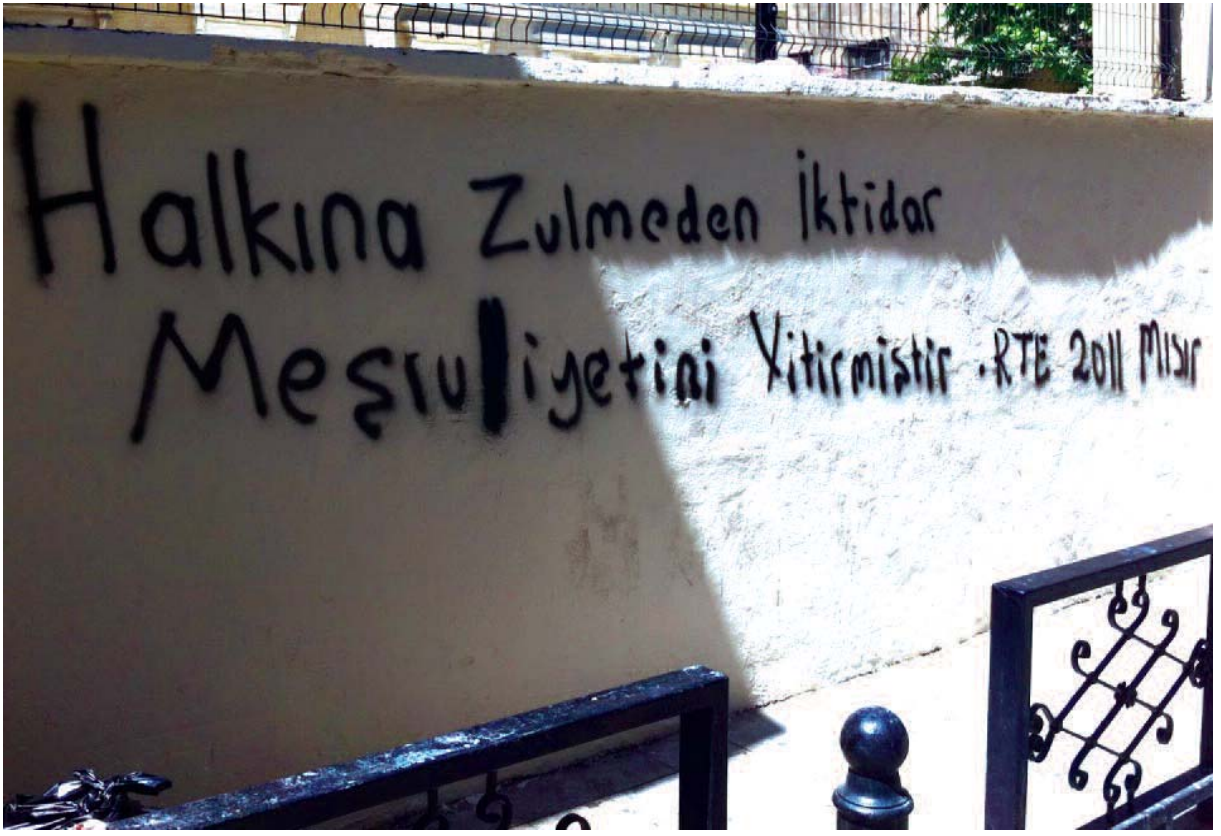 Halkına Zulmeden İktidar
Meşruiyetini Yitirmiştir. RTE 2011 Mısır